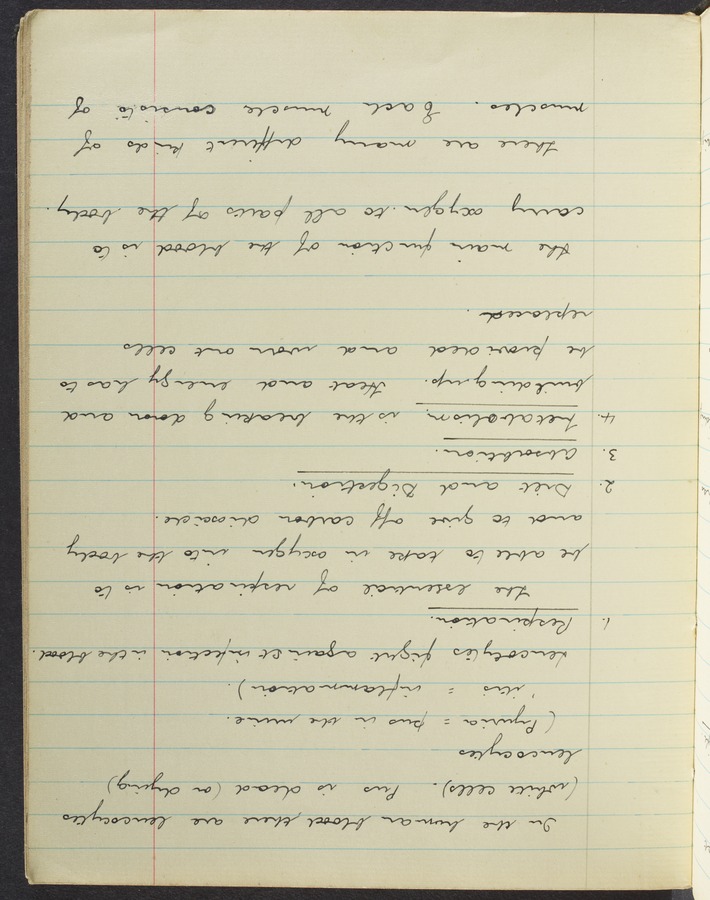 In the human blood, there are leucocytes
(white cells). Pus is dead (or dying)
leucocytes
(Pyuria = pus in the urine.
'itis = inflammation).
Leucocytes fight against infection in the blood.
1. Respiration.
the essential of respiration is to
be able to take in oxygen into the body
and to give off carbon dioxide.
2. Diet and Digestion.
3. Absorbtion.
4. Metabolism. is the breaking down and
building up. Heat and energy has to
be provided and worn out cells
replaced.
the main function of the blood is to
carry oxygen to all parts of the body.
there are many different kinds of
muscles. Each muscle consists of